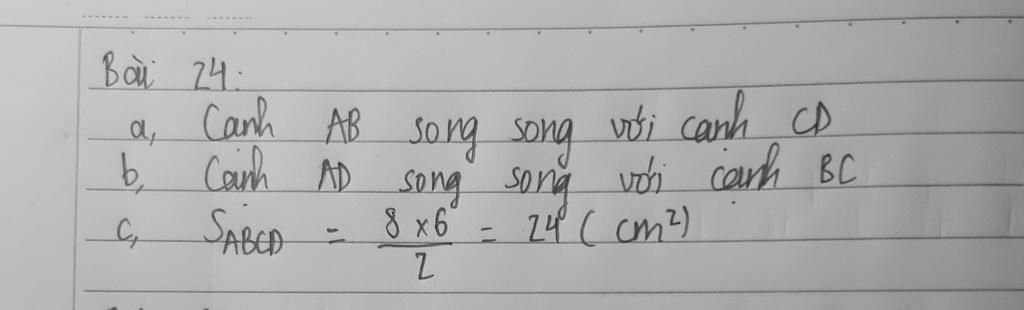 Bài 24:
a, Cạnh AB song song với cạnh CD
b, Cạnh AD song song với cạnh BC
c, S_ABCD = \frac{8 × 6}{2} = 24 (cm²)